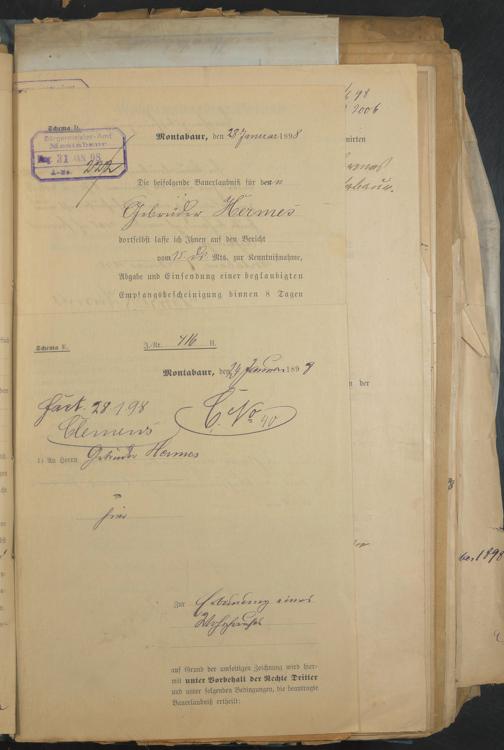 Schema D.
Bürgermeister-Amt
Montabaur
31 JAN 98
A-No. 222
Montabaur, den 28 Januar 1898
Die beifolgende Bauerlaubniß für den
Gebrüder Hermes
dortselbst lasse ich Ihnen auf den Bericht
vom 15. ds Mts. zur Kenntnißnahme,
Abgabe und Einsendung einer beglaubigten
Empfangsbescheinigung binnen 8 Tagen
Schema E.
J.-Nr. 416 II.
Montabaur, den 29 Januar 1898
fact. 28 1 98
Clemens
C. No 40
1) An Herrn Gebrüder Hermes
hier
Zur Erbauung eines
Wohnhauses
auf Grund der umseitigen Zeichnung wird hier-
mit unter Vorbehalt der Rechte Dritter
und unter folgenden Bedingungen, die beantragte
Bauerlaubniß ertheilt:
98
2006
mirten
n der
ber 1898